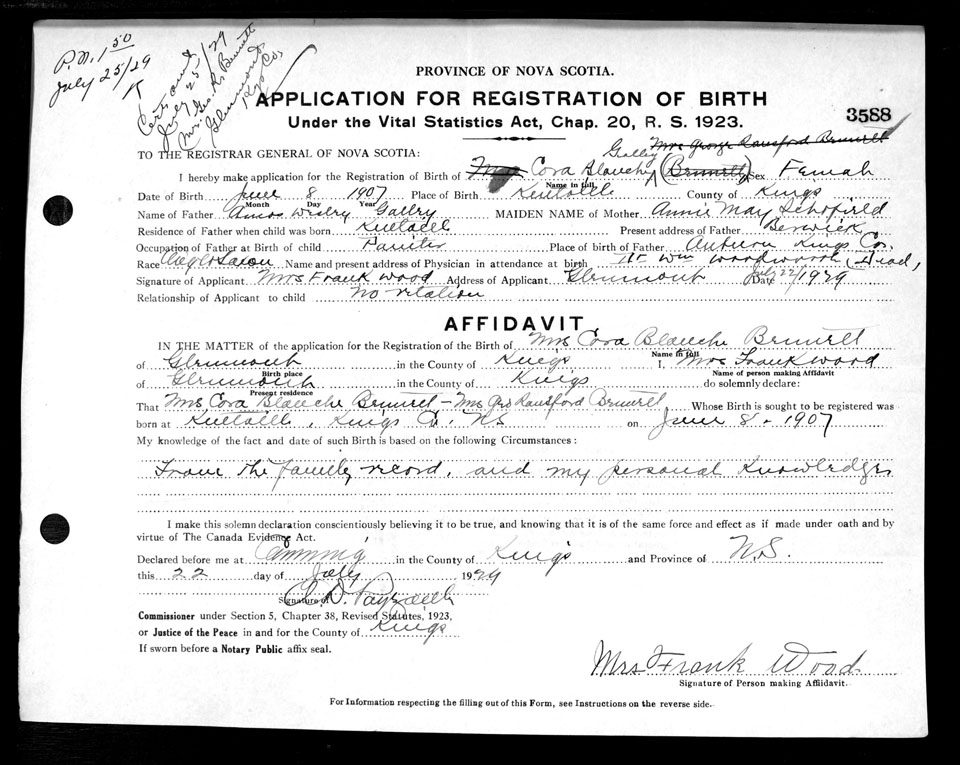 P.N. 1 50
July 25/29
K
Cert sent
July 25/29
Mrs Geo. R. Bennett
Glenmont
Kgs Co,
PROVINCE OF NOVA SCOTIA.
APPLICATION FOR REGISTRATION OF BIRTH
3588
Under the Vital Statistics Act, Chap. 20, R. S. 1923.
Mrs George Ransford Bennett
TO THE REGISTRAR GENERAL OF NOVA SCOTIA:
Gallry
I hereby make application for the Registration of Birth of Mrs Cora Blanche (Bennett) Sex Female
Name in full
Date of Birth June 8 1907 Place of Birth County of Kings
Month Day Year
Name of Father Amos Wesley Gallry MAIDEN NAME of Mother Annie May Schofield
Residence of Father when child was born Present address of Father Berwick
Occupation of Father at Birth of child Painter Place of birth of Father Auburn Kings Co.
Race Anglo Saxon Name and present address of Physician in attendance at birth Dr Wm Woodworth (Dead,
Signature of Applicant Mrs Frank Wood Address of Applicant Glenmont Date July 22/1929
Relationship of Applicant to child No relation
AFFIDAVIT.
IN THE MATTER of the application for the Registration of Birth of Mrs Cora Blanche Bennett
Name in full
of Glenmont in the County of Kings I, Mrs Frank Wood
Birth place Name of person making Affidavit
of Glenmont in the County of Kings do solemnly declare:
Present residence
That Mrs Cora Blanche Bennett - Mrs Geo Ransford Bennett Whose Birth is sought to be registered was
born at , Kings Co. NS on June 8 - 1907
My knowledge of the fact and date of such Birth is based on the following Circumstances:
From the family record, and my personal Knowledge
I make this solemn declaration conscientiously believing it to be true, and knowing that it is of the same force and effect as if made under oath and by
virtue of The Canada Evidence Act.
Declared before me at Canning in the County of Kings and Province of N.S.
this 22 day of July 1929
Signature of
Commissioner under Section 5, Chapter 38, Revised Statutes, 1923,
or Justice of the Peace in and for the County of Kings
If sworn before a Notary Public affix seal.
Mrs Frank Wood
Signature of Person making Affidavit.
For Information respecting the filling out of this Form, see Instructions on the reverse side.